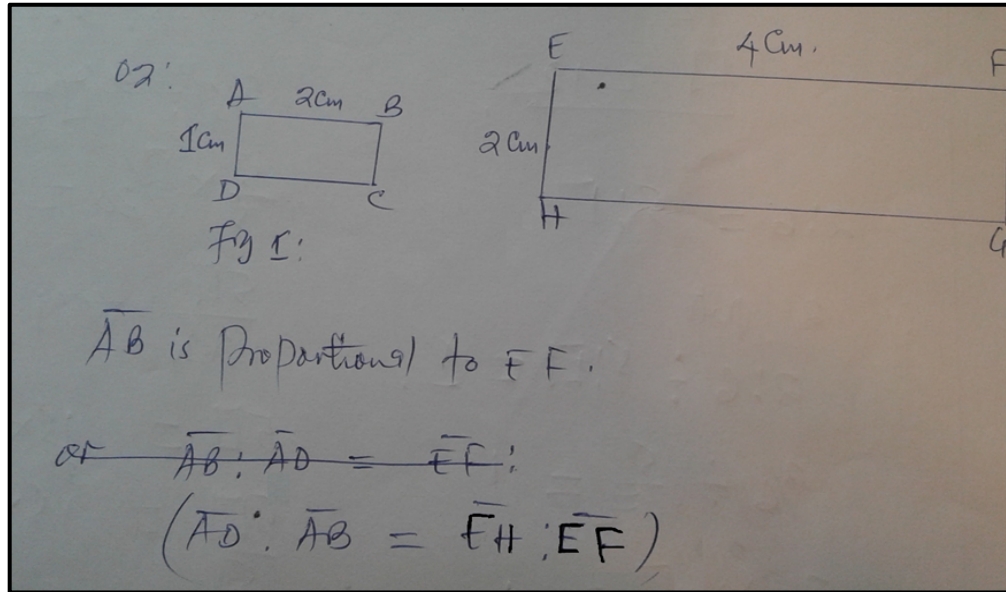 02:
A 2cm B
1cm
D C
Fig 1:
E 4 cm. F
2 cm
H G
AB is proportional to EF.
or AB: AD = EF:
(AD: AB = EH: EF)